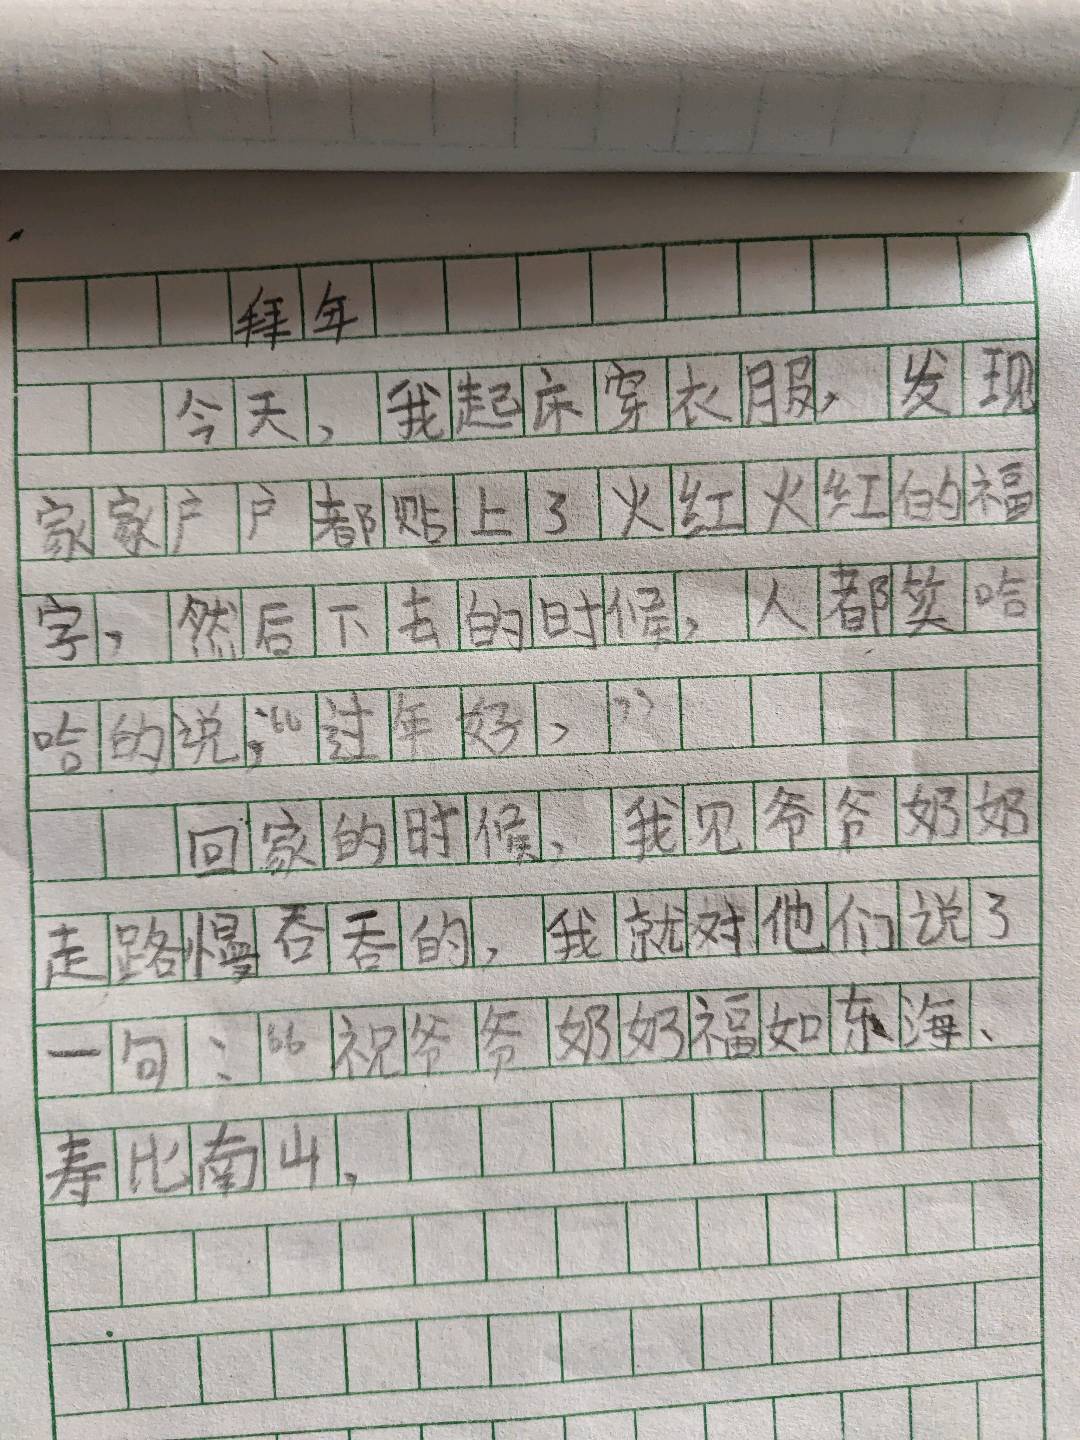 拜年
今天，我起床穿衣服，发现
家家户户都贴上了火红火红的福
字，然后下去的时候，人都笑哈
哈的说：“过年好，”
回家的时候，我见爷爷奶奶
走路慢吞吞的，我就对他们说了
一句：“祝爷爷奶奶福如东海、
寿比南山，